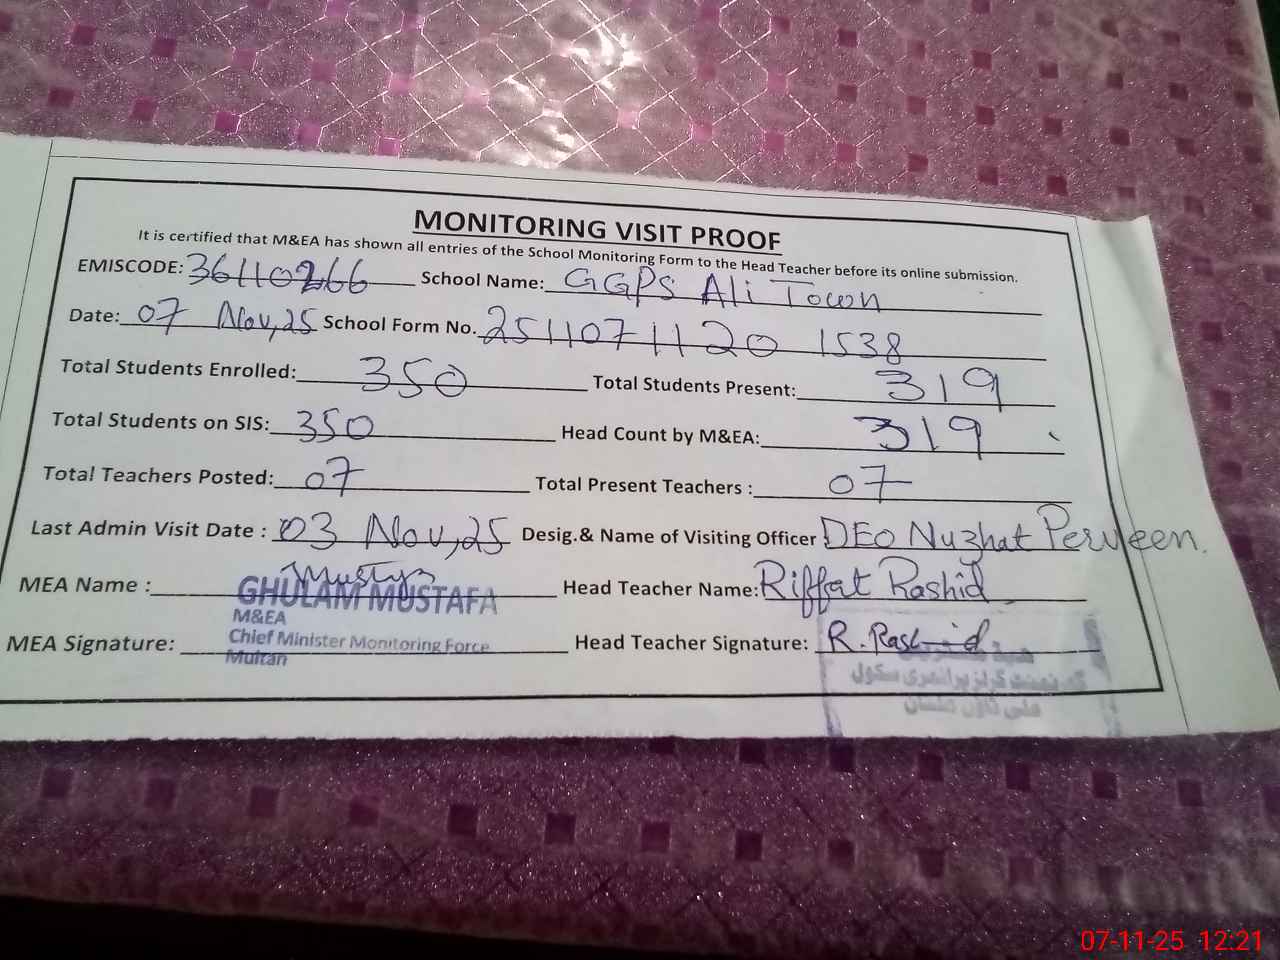 MONITORING VISIT PROOF
It is certified that M&EA has shown all entries of the School Monitoring Form to the Head Teacher before its online submission.
EMISCODE: 36110266 School Name: GGPS Ali Town
Date: 07 Nov,25 School Form No. 2511071120 1538
Total Students Enrolled: 350 Total Students Present: 319
Total Students on SIS: 350 Head Count by M&EA: 319
Total Teachers Posted: 07 Total Present Teachers : 07
Last Admin Visit Date : 03 Nov,25 Desig.& Name of Visiting Officer DEO Nuzhat Perveen.
MEA Name : GHULAM MUSTAFA Head Teacher Name: Riffat Rashid
M&EA
Chief Minister Monitoring Force
MEA Signature: Multan Head Teacher Signature: R. Rashid
گورنمنٹ گرلز پرائمری سکول
علی ٹاؤن ملتان
07-11-25 12:21